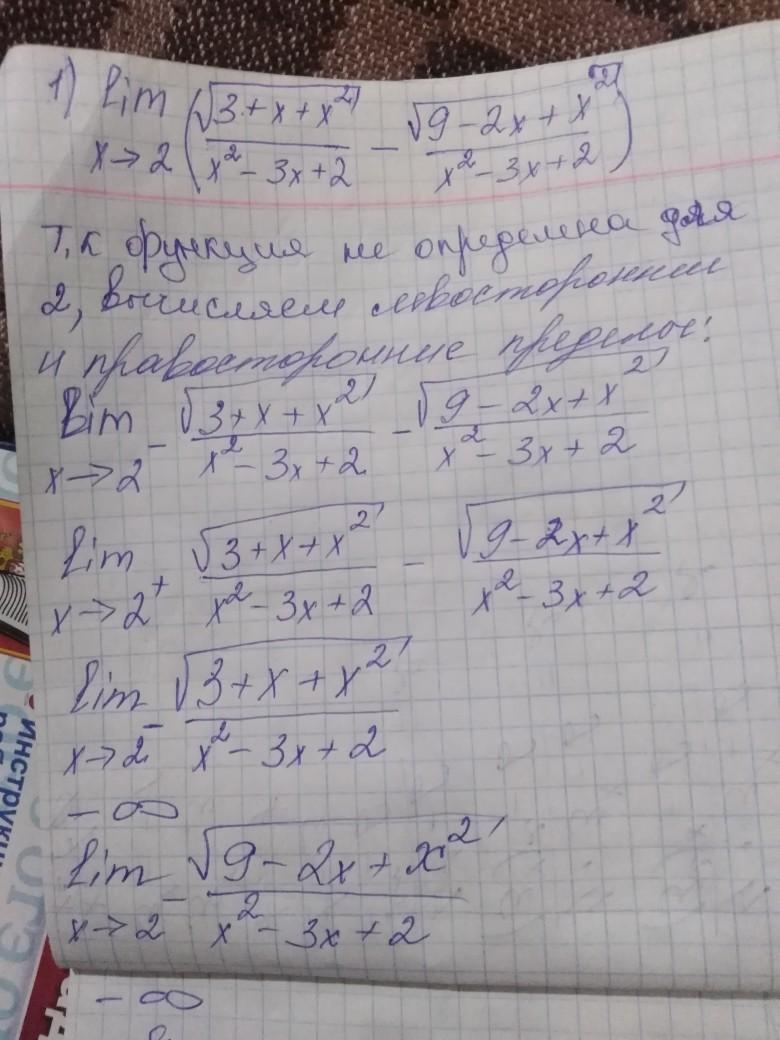 1) lim (√(3+x+x²)/(x²-3x+2) - √(9-2x+x²)/(x²-3x+2))
x→2
Т.к функция не определена для
2, вычисляем левосторонний
и правосторонние пределы:
lim √(3+x+x²)/(x²-3x+2) - √(9-2x+x²)/(x²-3x+2)
x→2⁻
lim √(3+x+x²)/(x²-3x+2) - √(9-2x+x²)/(x²-3x+2)
x→2⁺
lim √(3+x+x²)/(x²-3x+2)
x→2⁻
-∞
lim √(9-2x+x²)/(x²-3x+2)
x→2⁻
-∞